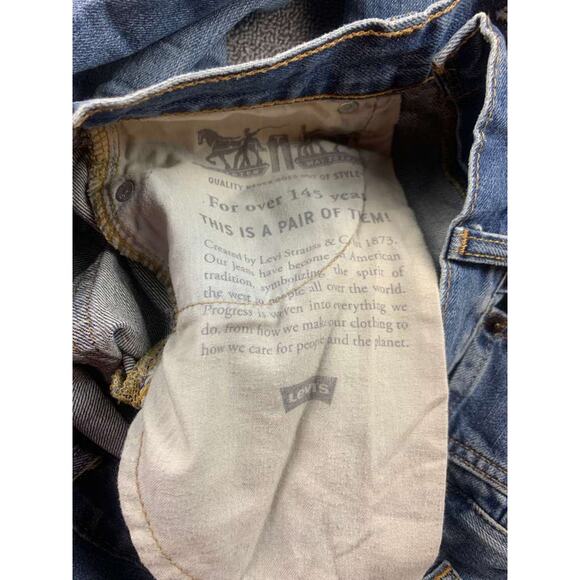 QUALITY NEVER GOES OUT OF STYLE
For over 145 years
THIS IS A PAIR OF THEM!
Created by Levi Strauss & Co. in 1873.
Our jeans have become an American
tradition, symbolizing the spirit of
the west to people all over the world.
Progress is woven into everything we
do, from how we make our clothing to
how we care for people and the planet.
LEVI'S